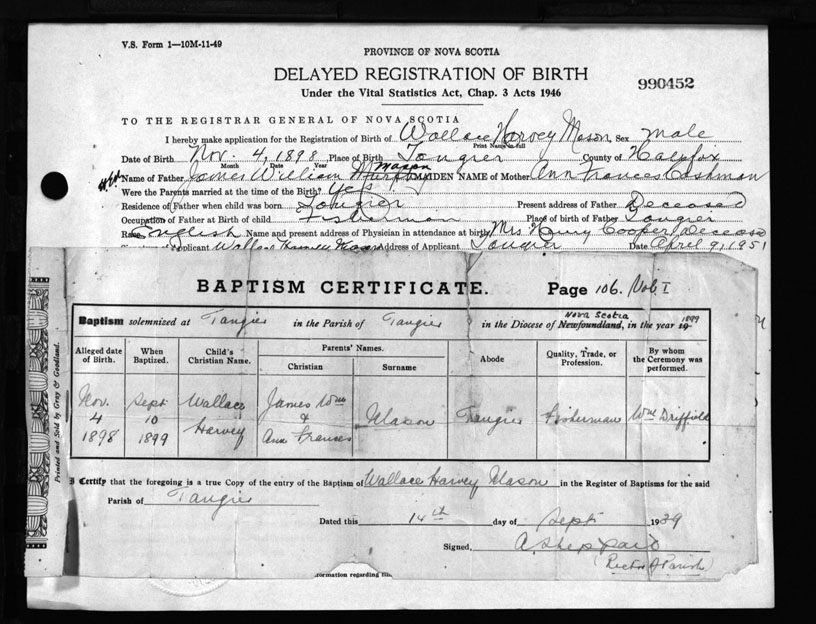 V.S. Form 1—10M-11-49
PROVINCE OF NOVA SCOTIA
DELAYED REGISTRATION OF BIRTH
990452
Under the Vital Statistics Act, Chap. 3 Acts 1946
TO THE REGISTRAR GENERAL OF NOVA SCOTIA
I hereby make application for the Registration of Birth of Wallace Harvey Mason, Sex male
Print Name in full
Date of Birth Nov. 4, 1898 Place of Birth Tangier County of Halifax
Month Date Year
Mason
Name of Father James William MAIDEN NAME of Mother Ann Frances Cushman
Were the Parents married at the time of the Birth? Yes
Residence of Father when child was born Tangier Present address of Father Deceased
Occupation of Father at Birth of child Fisherman Place of birth of Father Tangier
Race English Name and present address of Physician in attendance at birth Mrs Henry Cooper Deceased
Applicant Wallace Harvey Mason Address of Applicant Tangier Date April 9, 1951
BAPTISM CERTIFICATE. Page 106. Vol. I
Nova Scotia 1899
Baptism solemnized at Tangier in the Parish of Tangier in the Diocese of Newfoundland, in the year 19
Alleged date of Birth. When Baptized. Child's Christian Name. Parents' Names. Christian Surname Abode Quality, Trade, or Profession. By whom the Ceremony was performed.
Nov. Sept Wallace James Wm
4 10 & Mason Tangier Fisherman Wm Driffield
1898 1899 Harvey Ann Frances
I Certify that the foregoing is a true Copy of the entry of the Baptism of Wallace Harvey Mason in the Register of Baptisms for the said
Parish of Tangier
Dated this 14th day of Sept 1939
Signed, A Sheppard
(Rector of Parish)
Printed and Sold by Gray & Goodland.
ormation regarding